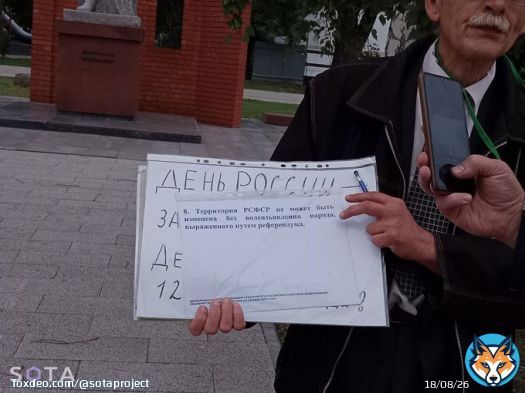 ДЕНЬ РОССИИ
ЗА
8. Территория РСФСР не может быть
изменена без волеизъявления народа,
выраженного путем референдума.
ДЕ
12
SOTA
foxdeo.com/@sotaproject
18/08/26